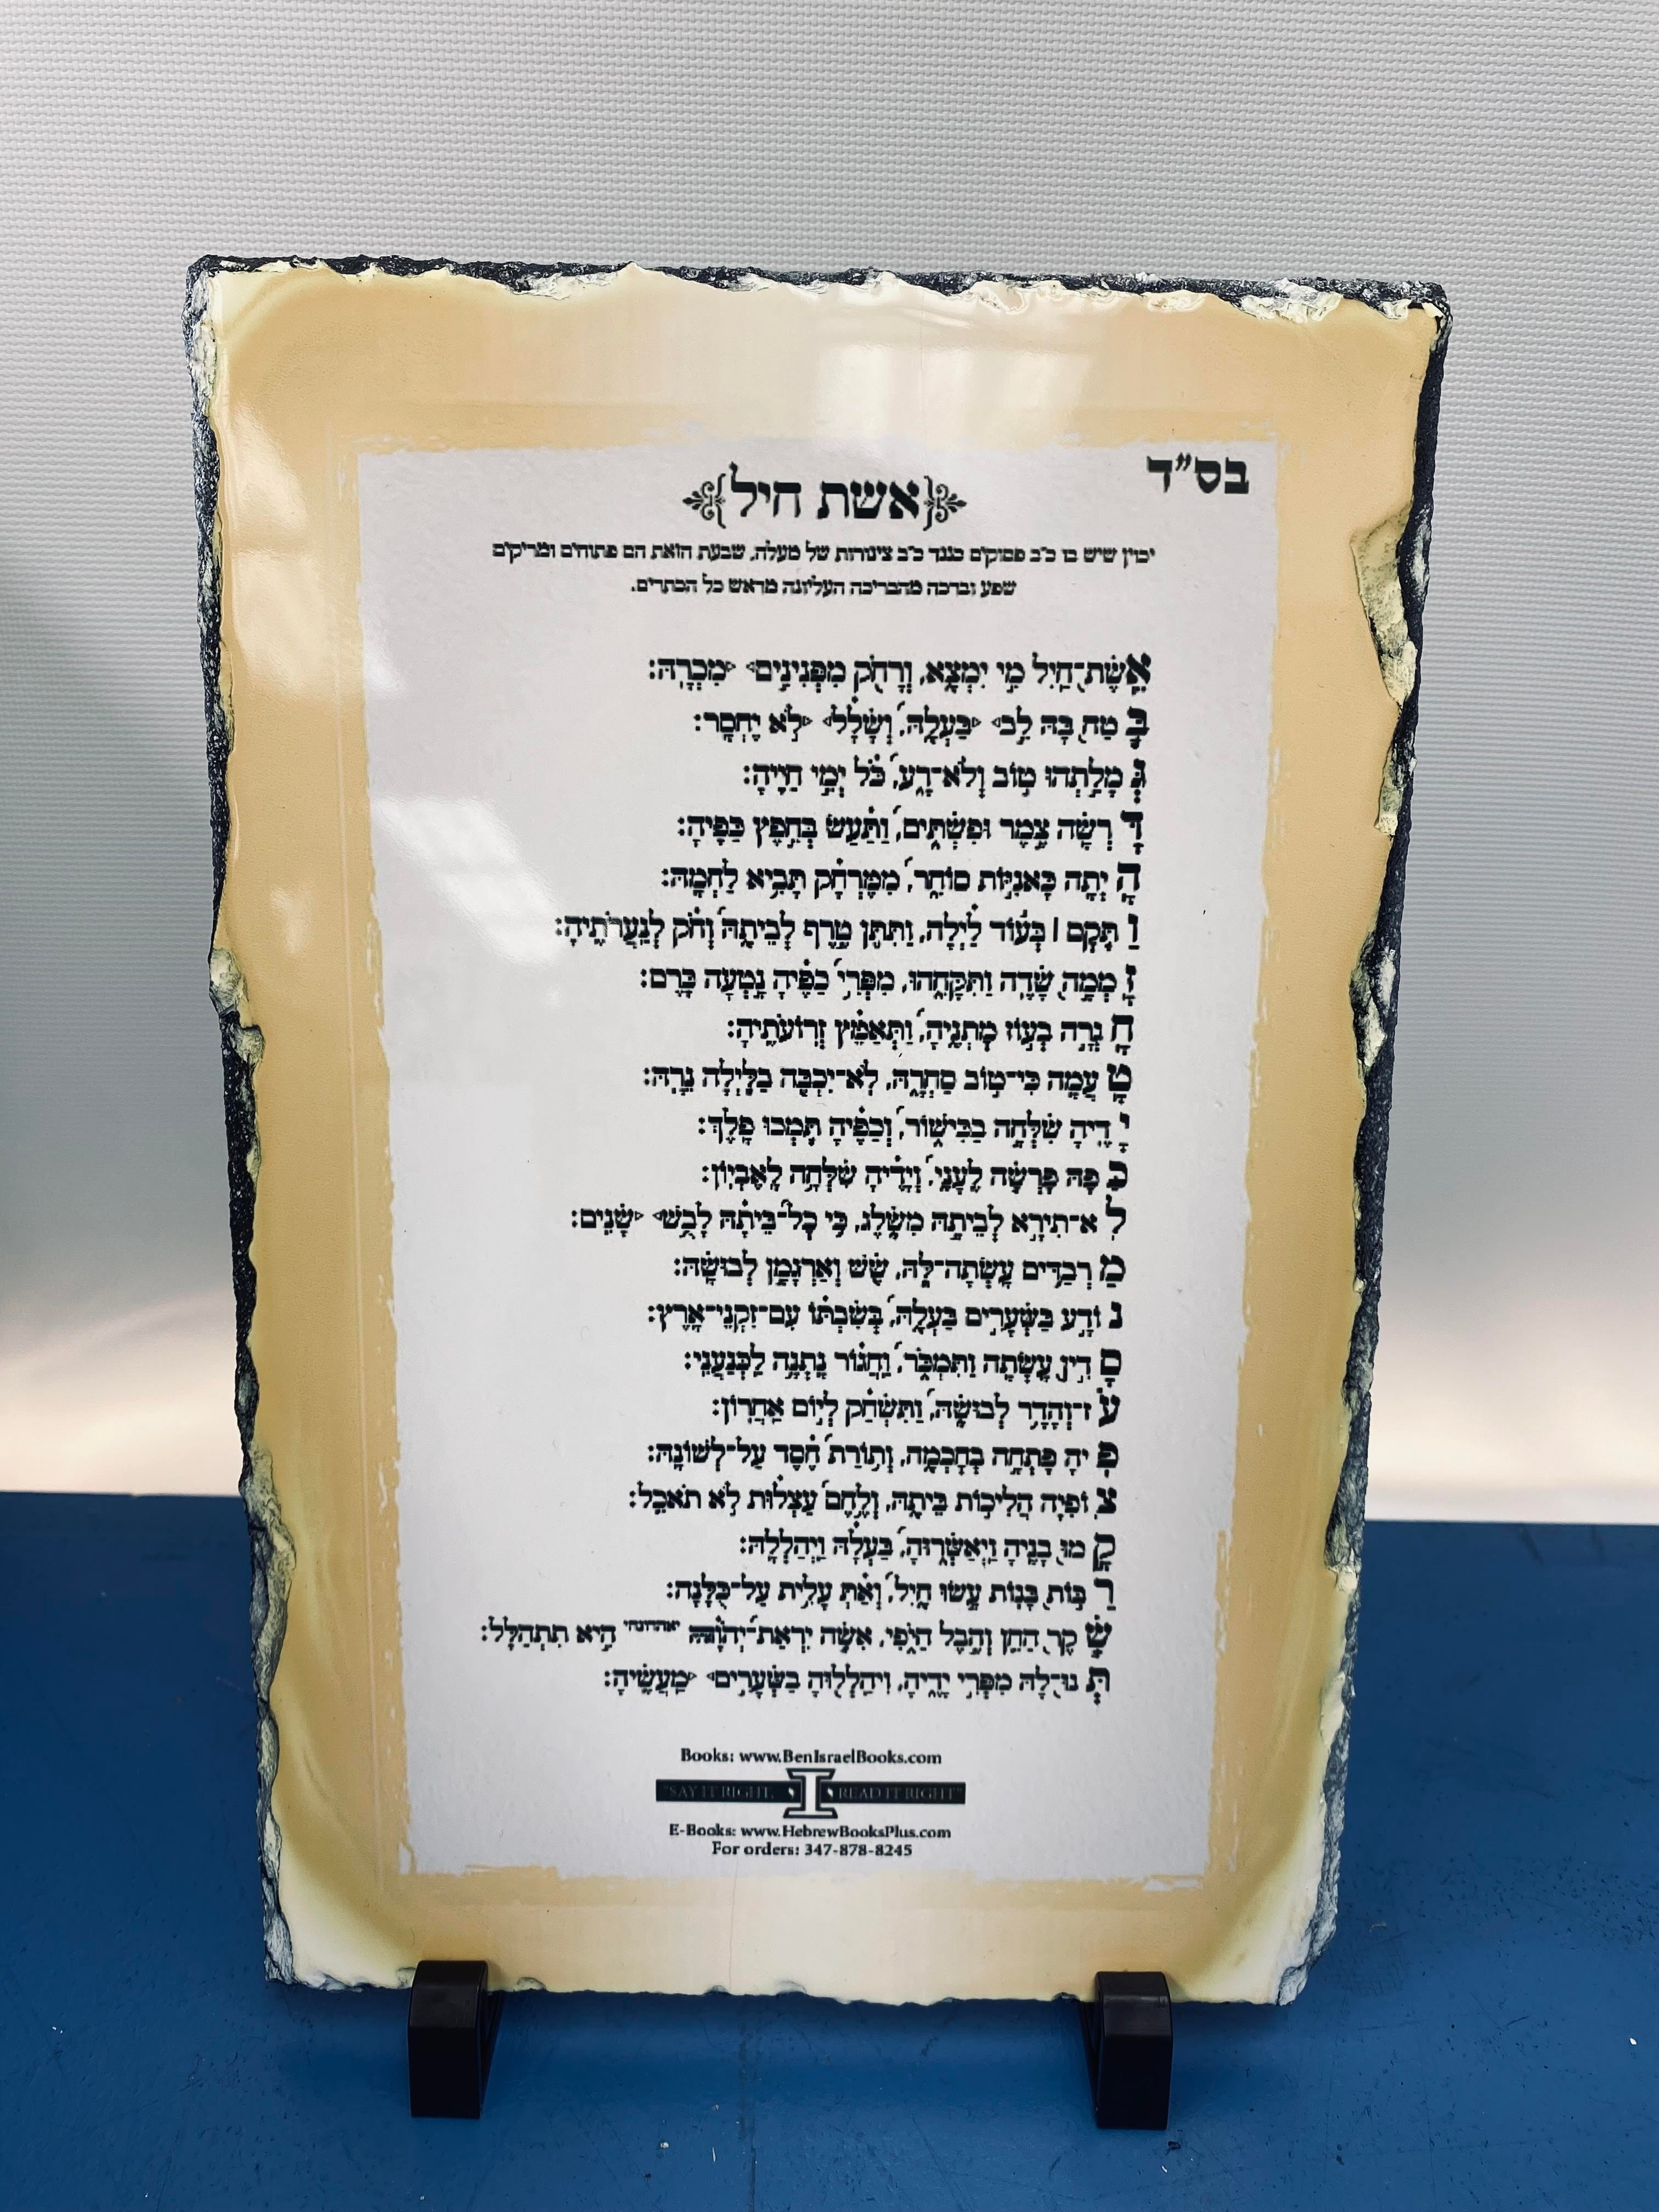 בס״ד
אשת חיל
יכוין שיש בו כ״ב פסוקים כנגד כ״ב צינורות של מעלה, שבעת הזאת הם פתוחים ומריקים
שפע וברכה מהבריכה העליונה מראש כל הכתרים.
אֵשֶׁת־חַיִל מִי יִמְצָא, וְרָחֹק מִפְּנִינִים מִכְרָהּ:
בָּ טַח בָּהּ לֵב בַּעְלָהּ, וְשָׁלָל לֹא יֶחְסָר:
גְּ מָלַתְהוּ טוֹב וְלֹא־רָע, כֹּל יְמֵי חַיֶּיהָ:
דָּ רְשָׁה צֶמֶר וּפִשְׁתִּים, וַתַּעַשׂ בְּחֵפֶץ כַּפֶּיהָ:
הָ יְתָה כָּאֳנִיּוֹת סוֹחֵר, מִמֶּרְחָק תָּבִיא לַחְמָהּ:
וַ תָּקָם | בְּעוֹד לַיְלָה, וַתִּתֵּן טֶרֶף לְבֵיתָהּ וְחֹק לְנַעֲרֹתֶיהָ:
זָ מְמָה שָׂדֶה וַתִּקָּחֵהוּ, מִפְּרִי כַפֶּיהָ נָטְעָה כָּרֶם:
חָ גְרָה בְעוֹז מָתְנֶיהָ, וַתְּאַמֵּץ זְרוֹעֹתֶיהָ:
טָ עֲמָה כִּי־טוֹב סַחְרָהּ, לֹא־יִכְבֶּה בַלַּיְלָה נֵרָהּ:
יָ דֶיהָ שִׁלְּחָה בַכִּישׁוֹר, וְכַפֶּיהָ תָּמְכוּ פָלֶךְ:
כַּ פָּהּ פָּרְשָׂה לֶעָנִי, וְיָדֶיהָ שִׁלְּחָה לָאֶבְיוֹן:
לֹ א־תִירָא לְבֵיתָהּ מִשָּׁלֶג, כִּי כָל־בֵּיתָהּ לָבֻשׁ שָׁנִים:
מַ רְבַדִּים עָשְׂתָה־לָּהּ, שֵׁשׁ וְאַרְגָּמָן לְבוּשָׁהּ:
נ וֹדָע בַּשְּׁעָרִים בַּעְלָהּ, בְּשִׁבְתּוֹ עִם־זִקְנֵי־אָרֶץ:
סָ דִין עָשְׂתָה וַתִּמְכֹּר, וַחֲגוֹר נָתְנָה לַכְּנַעֲנִי:
עֹ ז־וְהָדָר לְבוּשָׁהּ, וַתִּשְׂחַק לְיוֹם אַחֲרוֹן:
פִּ יהָ פָּתְחָה בְחָכְמָה, וְתוֹרַת חֶסֶד עַל־לְשׁוֹנָהּ:
צ וֹפִיָּה הֲלִיכוֹת בֵּיתָהּ, וְלֶחֶם עַצְלוּת לֹא תֹאכֵל:
קָ מוּ בָנֶיהָ וַיְאַשְּׁרוּהָ, בַּעְלָהּ וַיְהַלְלָהּ:
רַ בּוֹת בָּנוֹת עָשׂוּ חָיִל, וְאַתְּ עָלִית עַל־כֻּלָּנָה:
שֶׁ קֶר הַחֵן וְהֶבֶל הַיֹּפִי, אִשָּׁה יִרְאַת־יְהוָה יאהדונהי הִיא תִתְהַלָּל:
תְּ נוּ־לָהּ מִפְּרִי יָדֶיהָ, וִיהַלְלוּהָ בַשְּׁעָרִים מַעֲשֶׂיהָ:
Books: www.BenIsraelBooks.com
"SAY IT RIGHT, I READ IT RIGHT"
E-Books: www.HebrewBooksPlus.com
For orders: 347-878-8245